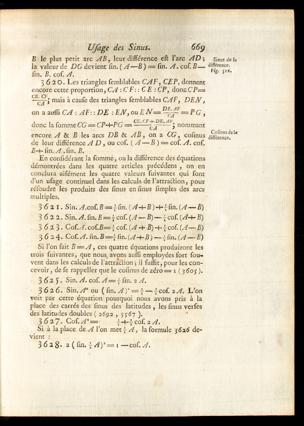 Usage des Sinus. 669
B le plus petit arc AB, leur différence est l'arc AD;
la valeur de DG devient sin. (A−B) = sin. A. cos. B−
sin. B. cos. A.
Sinus de la
différence.
Fig. 312.
3620. Les triangles semblables CAF, CEP, donnent
encore cette proportion, CA : CF :: CE : CP, donc CP=
CE. CF/CA; mais à cause des triangles semblables CAF, DEN,
on a aussi CA : AF :: DE : EN, ou EN = DE. AF/CA = PG,
donc la somme CG = CP + PG = CE. CF + DE. AF/CA; nommant
encore A & B les arcs DB & AB, on a CG, cosinus
de leur différence AD, ou cos. (A−B) = cos. A. cos.
B + sin. A. sin. B.
Cosinus de la
différence.
En considérant la somme, ou la différence des équations
démontrées dans les quatre articles précédens, on en
conclura aisément les quatre valeurs suivantes qui sont
d'un usage continuel dans les calculs de l'attraction, pour
résoudre les produits des sinus en sinus simples des arcs
multiples.
3621. Sin. A. cos. B = ½ sin. (A+B) + ½ sin. (A−B)
3622. Sin. A. sin. B = ½ cos. (A−B) − ½ cos. (A+B)
3623. Cos. A. cos. B = ½ cos. (A+B) + ½ cos. (A−B)
3624. Cos. A. sin. B = ½ sin. (A+B) − ½ sin. (A−B)
Si l'on fait B = A, ces quatre équations produiront les
trois suivantes, que nous avons aussi employées fort souvent
dans les calculs de l'attraction; il suffit, pour les concevoir,
de se rappeller que le cosinus de zéro = 1 (3605).
3625. Sin. A. cos. A = ½ sin. 2 A.
3626. Sin. A² ou (sin. A)² = ½ − ½ cos. 2 A. L'on
voit par cette équation pourquoi nous avons pris à la
place des carrés des sinus des latitudes, les sinus verses
des latitudes doubles (2692, 3567).
3627. Cos. A² = ½ + ½ cos. 2 A.
Si à la place de A l'on met ½ A, la formule 3626 devient :
3628. 2 (sin. ½ A)² = 1 − cos. A.